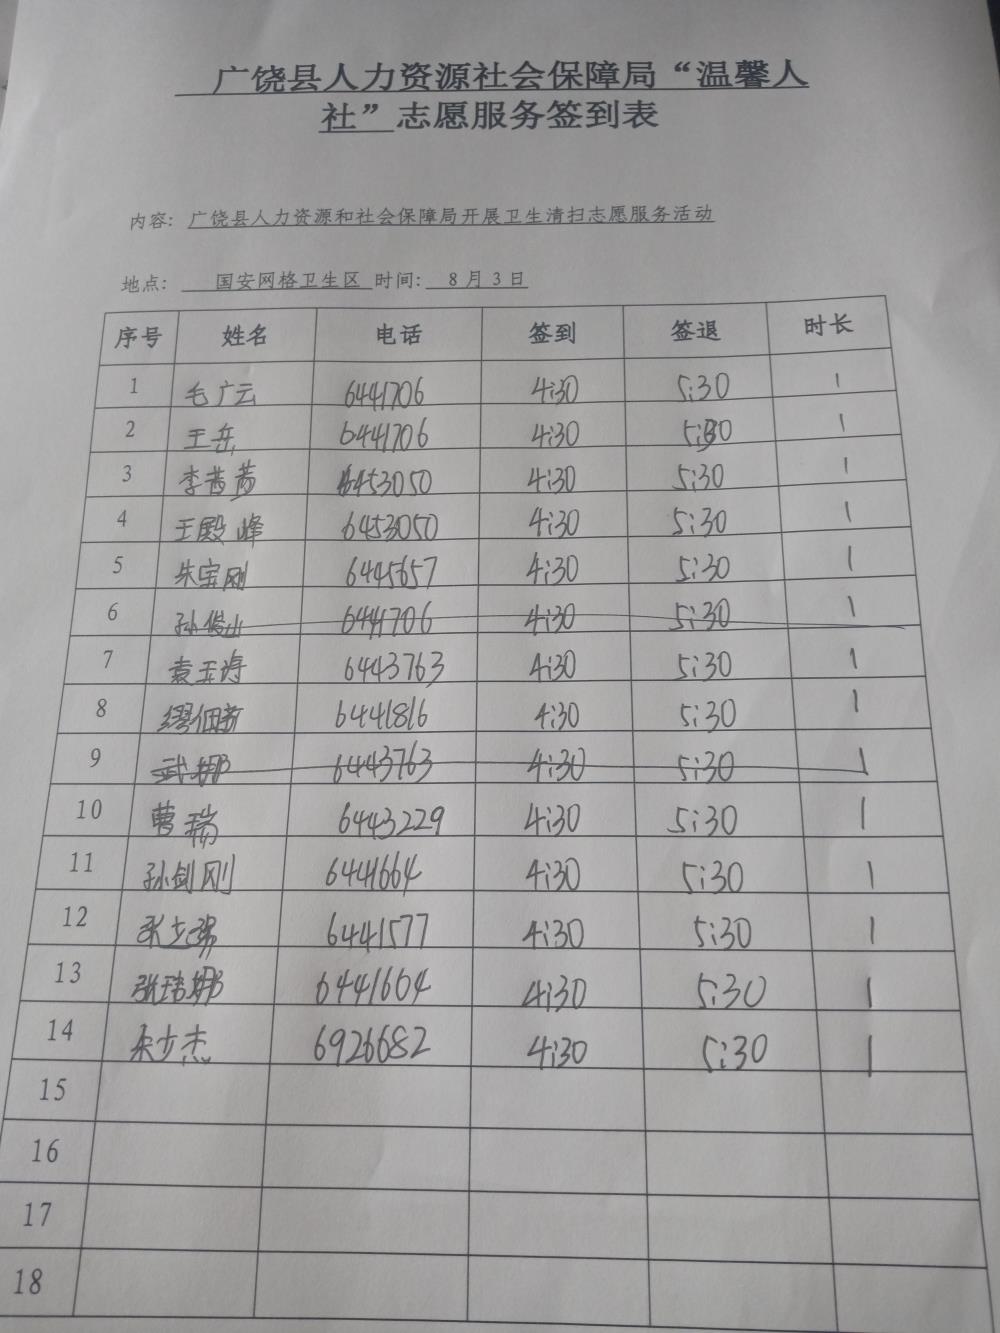 广饶县人力资源社会保障局“温馨人
社”志愿服务签到表
内容: 广饶县人力资源和社会保障局开展卫生清扫志愿服务活动
地点: 国安网格卫生区 时间: 8月3日
序号 姓名 电话 签到 签退 时长
1 毛广云 6441706 4:30 5:30 1
2 王岳 6441706 4:30 5:30 1
3 李茜茜 6453050 4:30 5:30 1
4 王殿峰 6453050 4:30 5:30 1
5 朱宝刚 6445657 4:30 5:30 1
6 孙俊山 6441706 4:30 5:30 1
7 袁玉涛 6443763 4:30 5:30 1
8 6441816 4:30 5:30 1
9 武娜 6443763 4:30 5:30 1
10 曹瑞 6443229 4:30 5:30 1
11 孙剑刚 6441664 4:30 5:30 1
12 6441577 4:30 5:30 1
13 张瑞娜 6441604 4:30 5:30 1
14 6926682 4:30 5:30 1
15
16
17
18